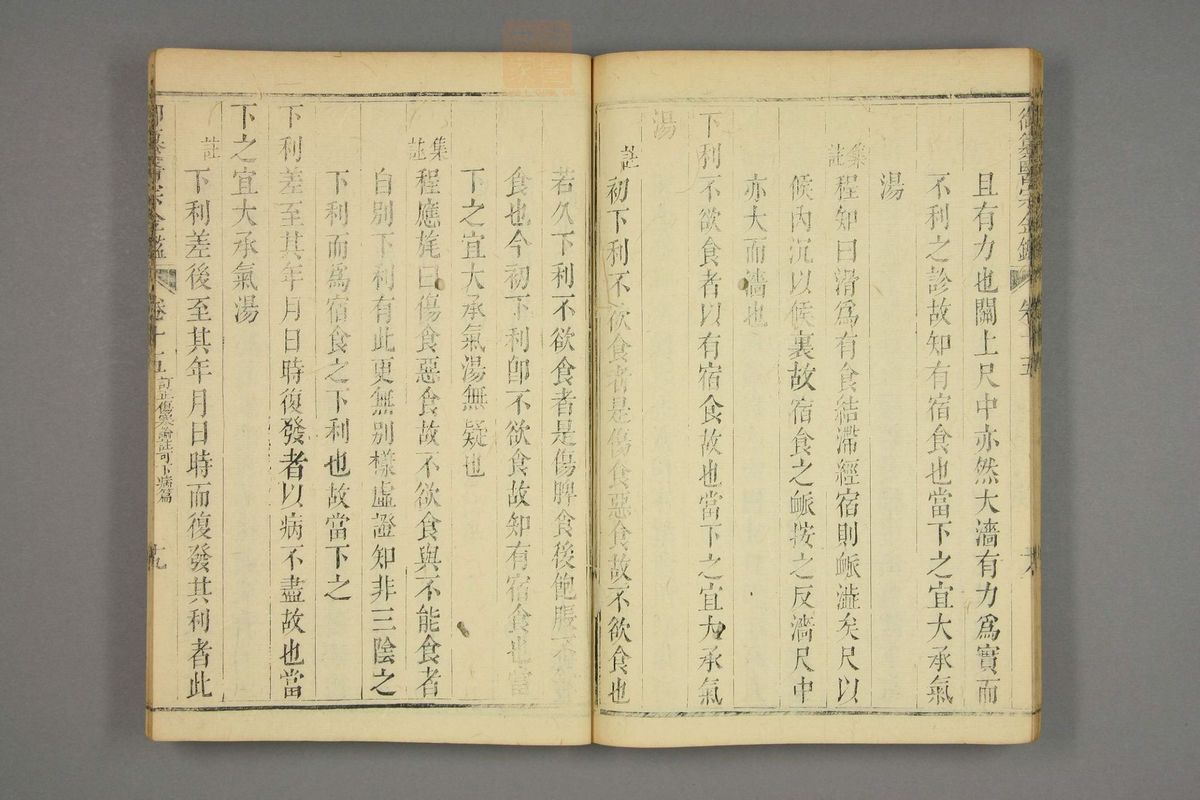 御纂醫宗金鑑 卷十五
且有力也關上尺中亦然大濇有力爲實而
不利之診故知有宿食也當下之宜大承氣
湯
集註
程知曰滑爲有食結滯經宿則脈澁矣尺以
候內沉以候裏故宿食之脈按之反濇尺中
亦大而濇也
下利不欲食者以有宿食故也當下之宜大承氣
湯
註
初下利不欲食者是傷食惡食故不欲食也
若久下利不欲食者是傷脾食後飽脹不
食也今初下利卽不欲食故知有宿食也當
下之宜大承氣湯無疑也
集註
程應旄曰傷食惡食故不欲食與不能食者
自別下利有此更無別樣虛證知非三陰之
下利而爲宿食之下利也故當下之
下利差至其年月日時復發者以病不盡故也當
下之宜大承氣湯
註
下利差後至其年月日時而復發其利者此
御纂醫宗金鑑 卷十五 訂正傷寒論註可下病篇 十九